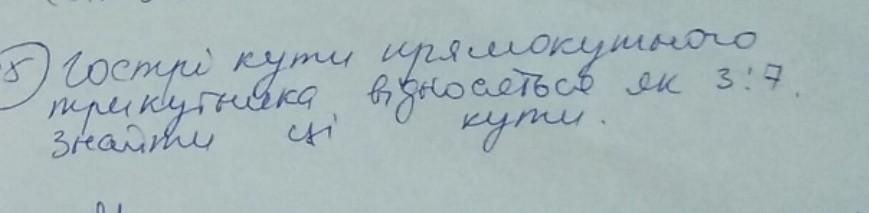 8) Гострі кути прямокутного
трикутника відносяться як 3:7.
Знайти ці кути.